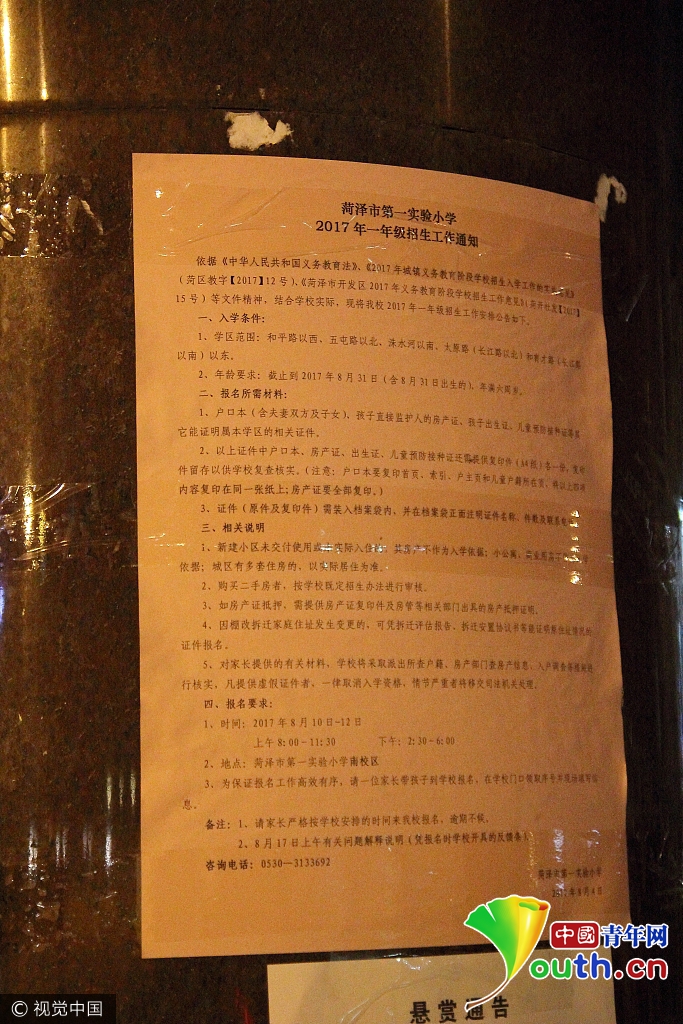 菏泽市第一实验小学
2017年一年级招生工作通知
依据《中华人民共和国义务教育法》、《2017年城镇义务教育阶段学校招生入学工作的
(菏区教字【2017】12号)、《菏泽市开发区2017年义务教育阶段学校招生工作意见》
15号)等文件精神,结合学校实际,现将我校2017年一年级招生工作安排公告如下。
一、入学条件:
1、学区范围:和平路以西、五屯路以北、洙水河以南、太原路(长江路以北)和育才路(长江路
以南)以东。
2、年龄要求:截止到2017年8月31日(含8月31日出生的),年满六周岁。
二、报名所需材料:
1、户口本(含夫妻双方及子女)、孩子直接监护人的房产证、孩子出生证、儿童预防接种证等
它能证明属本学区的相关证件。
2、以上证件中户口本、房产证、出生证、儿童预防接种证还需提供复印件(A4纸)各一份,复印
件留存以供学校复查核实。(注意:户口本要复印首页、索引、户主页和儿童户籍所在页,将以上四项
内容复印在同一张纸上;房产证要全部复印。)
3、证件(原件及复印件)需装入档案袋内,并在档案袋正面注明证件名称、件数及联系电话
三、相关说明
1、新建小区未交付使用或未实际入住的,其房产不作为入学依据;小公寓、商业用房不
依据;城区有多套住房的,以实际居住为准。
2、购买二手房者,按学校既定招生办法进行审核。
3、如房产证抵押,需提供房产证复印件及房管等相关部门出具的房产抵押证明。
4、因棚改拆迁家庭住址发生变更的,可凭拆迁评估报告、拆迁安置协议书等能证明原住址情况的
证件报名。
5、对家长提供的有关材料,学校将采取派出所查户籍、房产部门查房产信息、入户调查等措施进
行核实,凡提供虚假证件者,一律取消入学资格,情节严重者将移交司法机关处理。
四、报名要求:
1、时间:2017年8月10日-12日
上午8:00-11:30 下午:2:30-6:00
2、地点:菏泽市第一实验小学南校区
3、为保证报名工作高效有序,请一位家长带孩子到学校报名,在学校门口领取序号并现场填写信
息。
备注:1、请家长严格按学校安排的时间来我校报名,逾期不候。
2、8月17日上午有关问题解释说明(凭报名时学校开具的反馈条)
咨询电话:0530—3133692
菏泽市第一实验小学
2017年8月4日
中國青年网
Youth.cn
悬赏通告
© 视觉中国